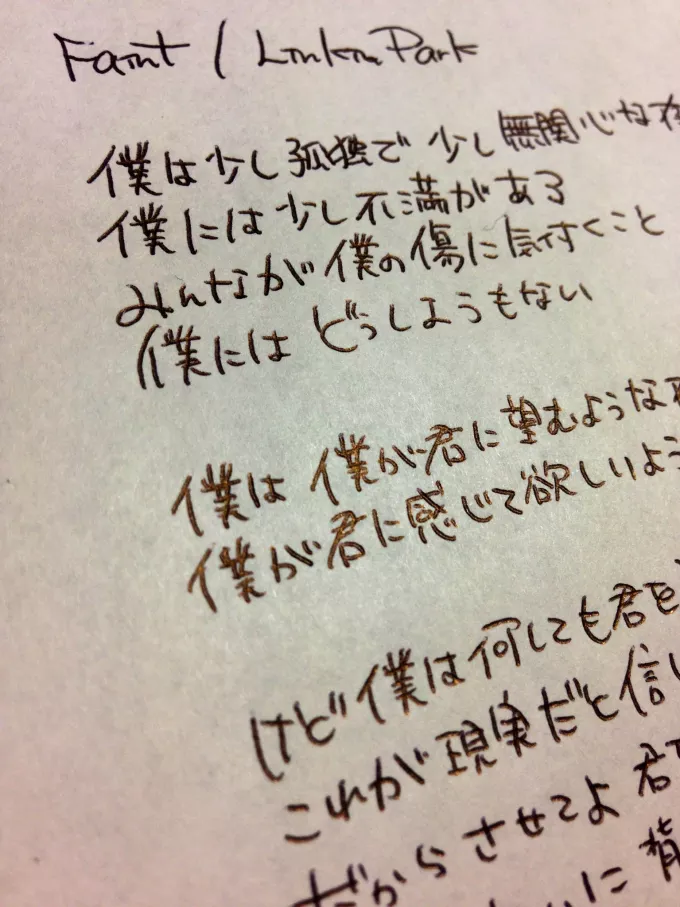 Faint / Linkin Park
僕は少し孤独で 少し無関心な
僕には少し不満がある
みんなが僕の傷に気付くこと
僕には どうしようもない
僕は 僕が君に望むような
僕が君に感じて欲しいよう
けど僕は何しても君を
これが現実だと信じ
だからさせてよ 君
に背